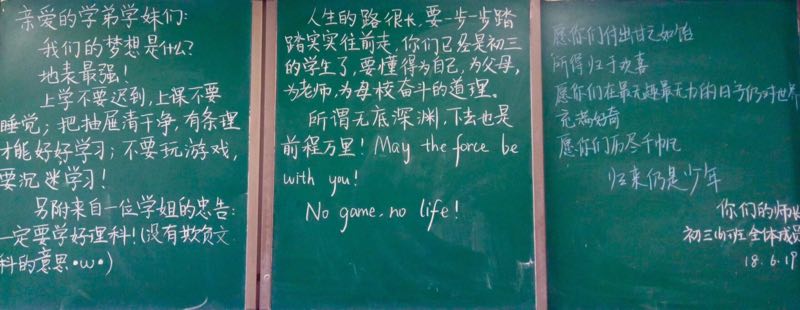 亲爱的学弟学妹们:
我们的梦想是什么?
地表最强!
上学不要迟到,上课不要
睡觉;把抽屉清干净,有条理
才能好好学习;不要玩游戏,
要沉迷学习!
另附来自一位学姐的忠告:
一定要学好理科!(没有欺负文
科的意思·ω·)
人生的路很长,要一步一步踏
踏实实往前走,你们已经是初三
的学生了,要懂得为自己,为父母,
为老师,为母校奋斗的道理。
所谓无底深渊,下去也是
前程万里! May the force be
with you!
No game, no life!
愿你们付出甘之如饴
所得归于欢喜
愿你们在最无趣最无力的日子仍对世界
充满好奇
愿你们历尽千帆
归来仍是少年
你们的师
初三 班全体成员
18.6.19